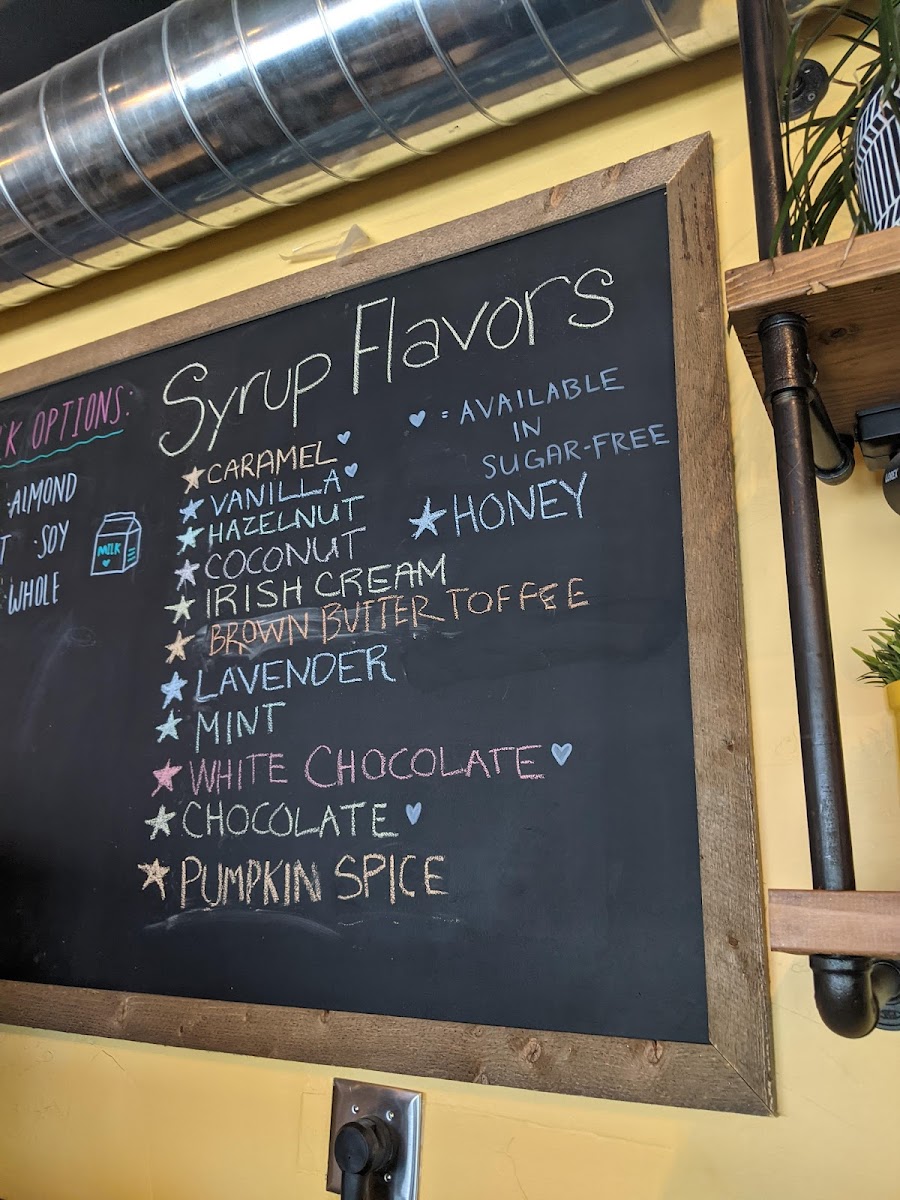 Syrup Flavors
OPTIONS:
·ALMOND
·SOY
·WHOLE
MILK
♥ = AVAILABLE
IN
SUGAR-FREE
★CARAMEL♥
★VANILLA♥
★HAZELNUT
★COCONUT
★IRISH CREAM
★BROWN BUTTER TOFFEE
★LAVENDER
★MINT
★WHITE CHOCOLATE♥
★CHOCOLATE♥
★PUMPKIN SPICE
★HONEY